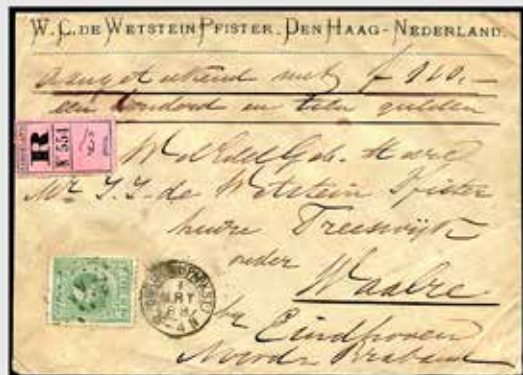 W. C. DE WETSTEIN PFISTER. DEN HAAG - NEDERLAND.
Aangetekend met f 110.-
een honderd en tien gulden
R
No 554
WelEdelGeb. Heer
Mr. J. J. de Wetstein Pfister
huize Treeswijk
onder
Waalre
bij Eindhoven
Noord Brabant